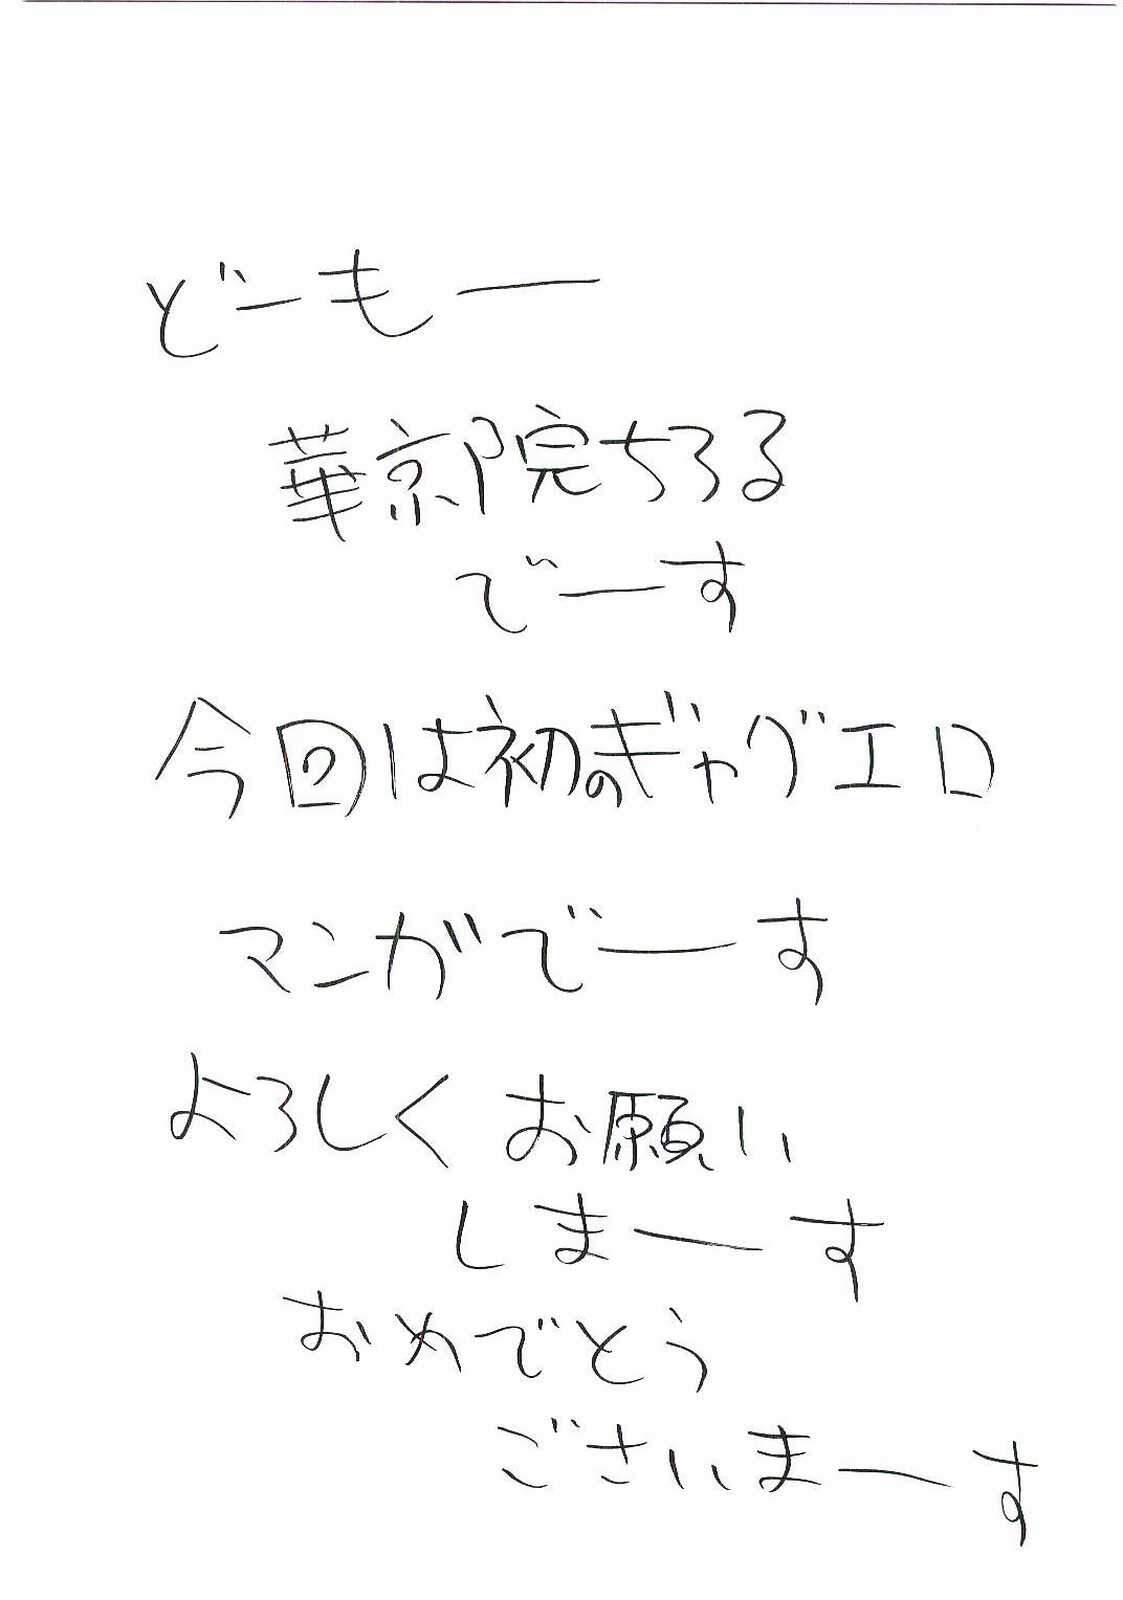 どーもー
華京院ちろる
でーす
今回は初のギャグエロ
マンガでーす
よろしくお願い
しまーす
おめでとう
ごさいまーす